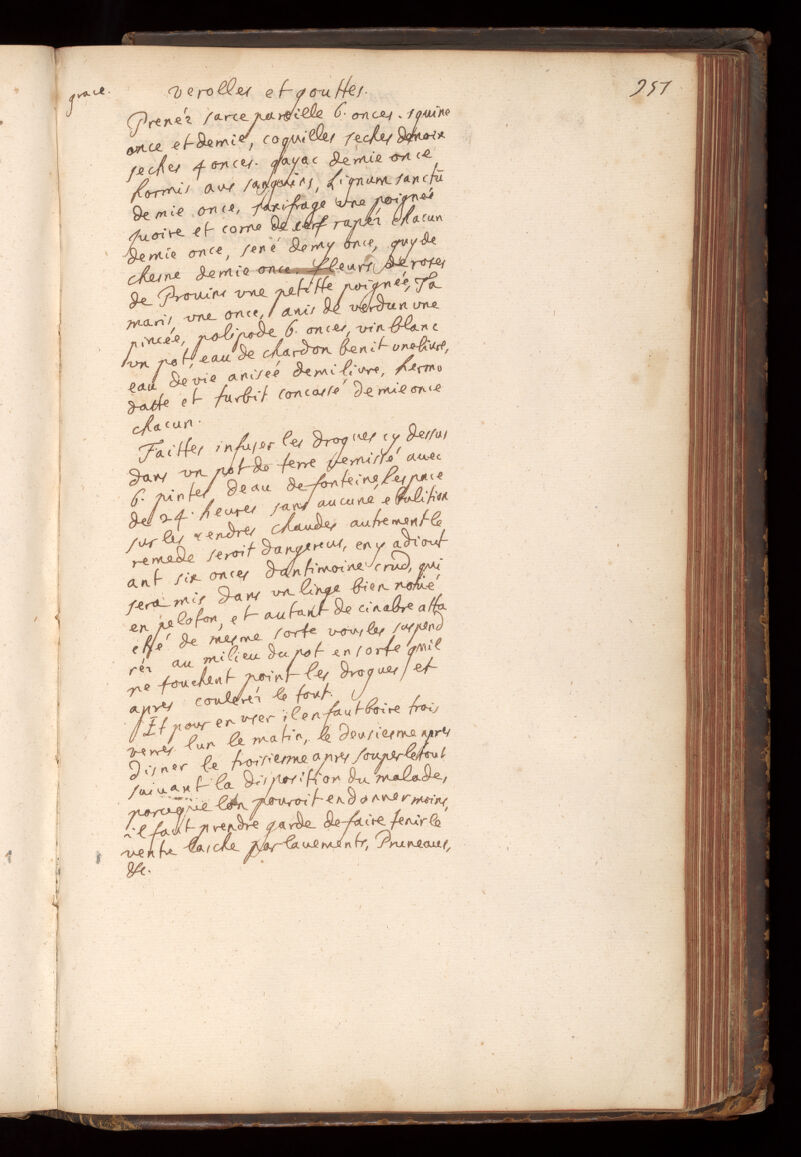 grace.
verolles et gouttes.
951
Prenéz sarce pareille 6. onces. squine
once et demie, coquilles seches de noix
seches 4 onces. gayac demie once
hormis aux sanguins, Lignum sanctũ
demie once, saxifrage une poignéé
yuoire et corne de cerf rapéz chacun
demie once, sené demy once, guy de
chesne demie once. fleurs de roses
de Prouins vne petitte poignéé, Ta
maris vne once, anis de verdun vne
pincéé, polipode 6. onces, vin blanc
vn pot, eau de chardon benit vne liure,
eau de vie aniséé demi liure, hermo
datte et turbit concassé demie once
chacun.
Faittes infuser les drogues cy dessus
dans vn pot de terre vernissé auec
6. pintes deau de fonteine, lespace
de 24. heures sans aucune ebulition
sur les cendres chaudes autrement le
remede seroit dangereux, en y adiout
ant six onces dantimoine crud, qui
sera mis dans vn linge bien noüé
en peloton, et autant de cinabre atta
ché de mesme sorte vous les suspend
réz au milieu du pot en sorte quil
ne touchent point les drogues, et
apres couleréz le tout.
Et pour en vser il en faut boire trois
verres lun le matin, le deusiesme apres
disner le troisiesme apres souper le tout
suiuant la disposition du malade,
parceque lon pouroit en donner moins,
il faut prendre garde de faire tenir le
ventre lasche par lauements, Pruneaus,
&c.